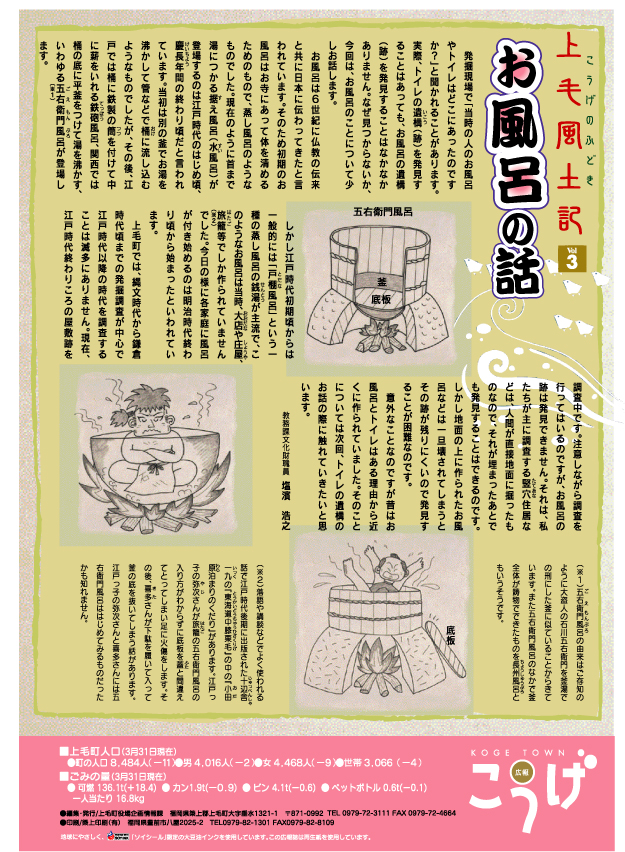 上毛風土記
こうげのふどき
Vol 3
お風呂の話
発掘現場で「当時の人のお風呂
やトイレはどこにあったのです
か?」と聞かれることがあります。
実際、トイレの遺構(跡)を発見す
ることはあっても、お風呂の遺構
(跡)を発見することはなかなか
ありません。なぜ見つからないか、
今回は、お風呂のことについて少
しお話します。
お風呂は6世紀に仏教の伝来
と共に日本に伝わってきたと言
われています。そのため初期のお
風呂はお寺にあって体を清める
ためのもので、蒸し風呂のような
ものでした。現在のように首まで
湯につかる据え風呂(水風呂)が
登場するのは江戸時代のはじめ頃、
慶長年間の終わり頃だと言われ
ています。当初は別の釜でお湯を
沸かして管などで桶に流し込む
ようなものでしたが、その後、江
戸では桶に鉄製の筒を付けて中
に薪をいれる鉄砲風呂、関西では
桶の底に平釜をつけて湯を沸かす、
いわゆる五右衛門風呂が登場し
(※1)
ます。
五右衛門風呂
釜
底板
しかし江戸時代初期頃からは
一般的には「戸棚風呂」という一
種の蒸し風呂の銭湯が主流で、こ
のようなお風呂は当時、大店や庄屋、
旅籠等でしか作られていません
(※2)
でした。今日の様に各家庭に風呂
が付き始めるのは明治時代終わ
り頃から始まったといわれてい
ます。
上毛町では、縄文時代から鎌倉
時代頃までの発掘調査が中心で
江戸時代以降の時代を調査する
ことは滅多にありません。現在、
江戸時代終わりごろの屋敷跡を
調査中です。注意しながら調査を
行ってはいるのですが、お風呂の
跡は発見できません。それは、私
たちが主に調査する竪穴住居な
どは、人間が直接地面に掘ったも
のなので、それが埋まったあとで
も発見することはできるのです。
しかし地面の上に作られたお風
呂などは一旦壊されてしまうと
その跡が残りにくいので発見す
ることが困難なのです。
意外なことなのですが昔はお
風呂とトイレはある理由から近
くに作られていました。そのこと
については次回、トイレの遺構の
お話の際に触れていきたいと思
います。
教務課文化財職員 塩濱 浩之
底板
(※1)五右衛門風呂の由来はご存知の
ように大盗人の石川五右衛門を釜湯で
の刑にした釜に似ていることからきて
います。また五右衛門風呂のなかで釜
全体が鋳物でできたものを長州風呂と
もいうそうです。
(※2)落語や講談などでよく使われる
話で江戸時代後期に出版された十辺舎
一九の「東海道中膝栗毛」の中の「小田
原泊まりのくだり」があります。江戸っ
子の弥次さんが旅籠の五右衛門風呂の
入り方がわからずに底板を蓋と間違え
てとってしまい足に火傷をします。そ
の後、喜多さんが下駄を履いて入って
釜の底を抜いてしまう話があります。
江戸っ子の弥次さんと喜多さんには五
右衛門風呂ははじめてみるものだった
かも知れません。
■上毛町人口(3月31日現在)
●町の人口 8,484人(−11)●男 4,016人(−2)●女 4,468人(−9)●世帯 3,066(−4)
■ごみの量(3月31日現在)
●可燃 136.1t(+18.4) ●カン1.9t(−0.9) ●ビン 4.1t(−0.6) ●ペットボトル 0.6t(−0.1)
一人当たり 16.8kg
●編集・発行/上毛町役場企画情報課 福岡県築上郡上毛町大字垂水1321-1 〒871-0992 TEL 0979-72-3111 FAX 0979-72-4664
●印刷/築上印刷(有) 福岡県豊前市八屋2025-2 TEL0979-82-1301 FAX0979-82-8109
地球にやさしく、「ソイシール」認定の大豆油インクを使用しています。この広報誌は再生紙を使用しています。
KOGE TOWN
広報
こうげ